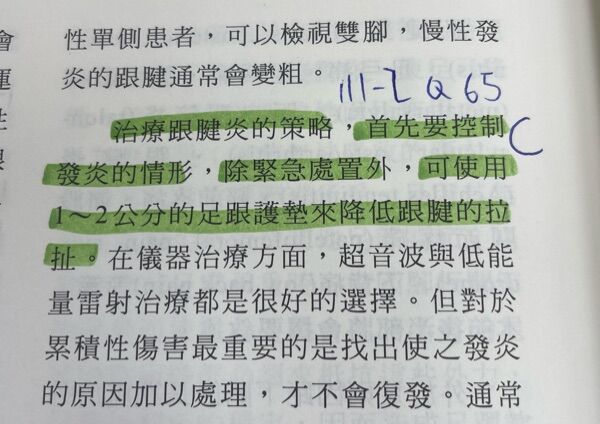 性單側患者，可以檢視雙腳，慢性發
炎的跟腱通常會變粗。
111-2 Q65
治療跟腱炎的策略，首先要控制
C
發炎的情形，除緊急處置外，可使用
1～2公分的足跟護墊來降低跟腱的拉
扯。在儀器治療方面，超音波與低能
量雷射治療都是很好的選擇。但對於
累積性傷害最重要的是找出使之發炎
的原因加以處理，才不會復發。通常